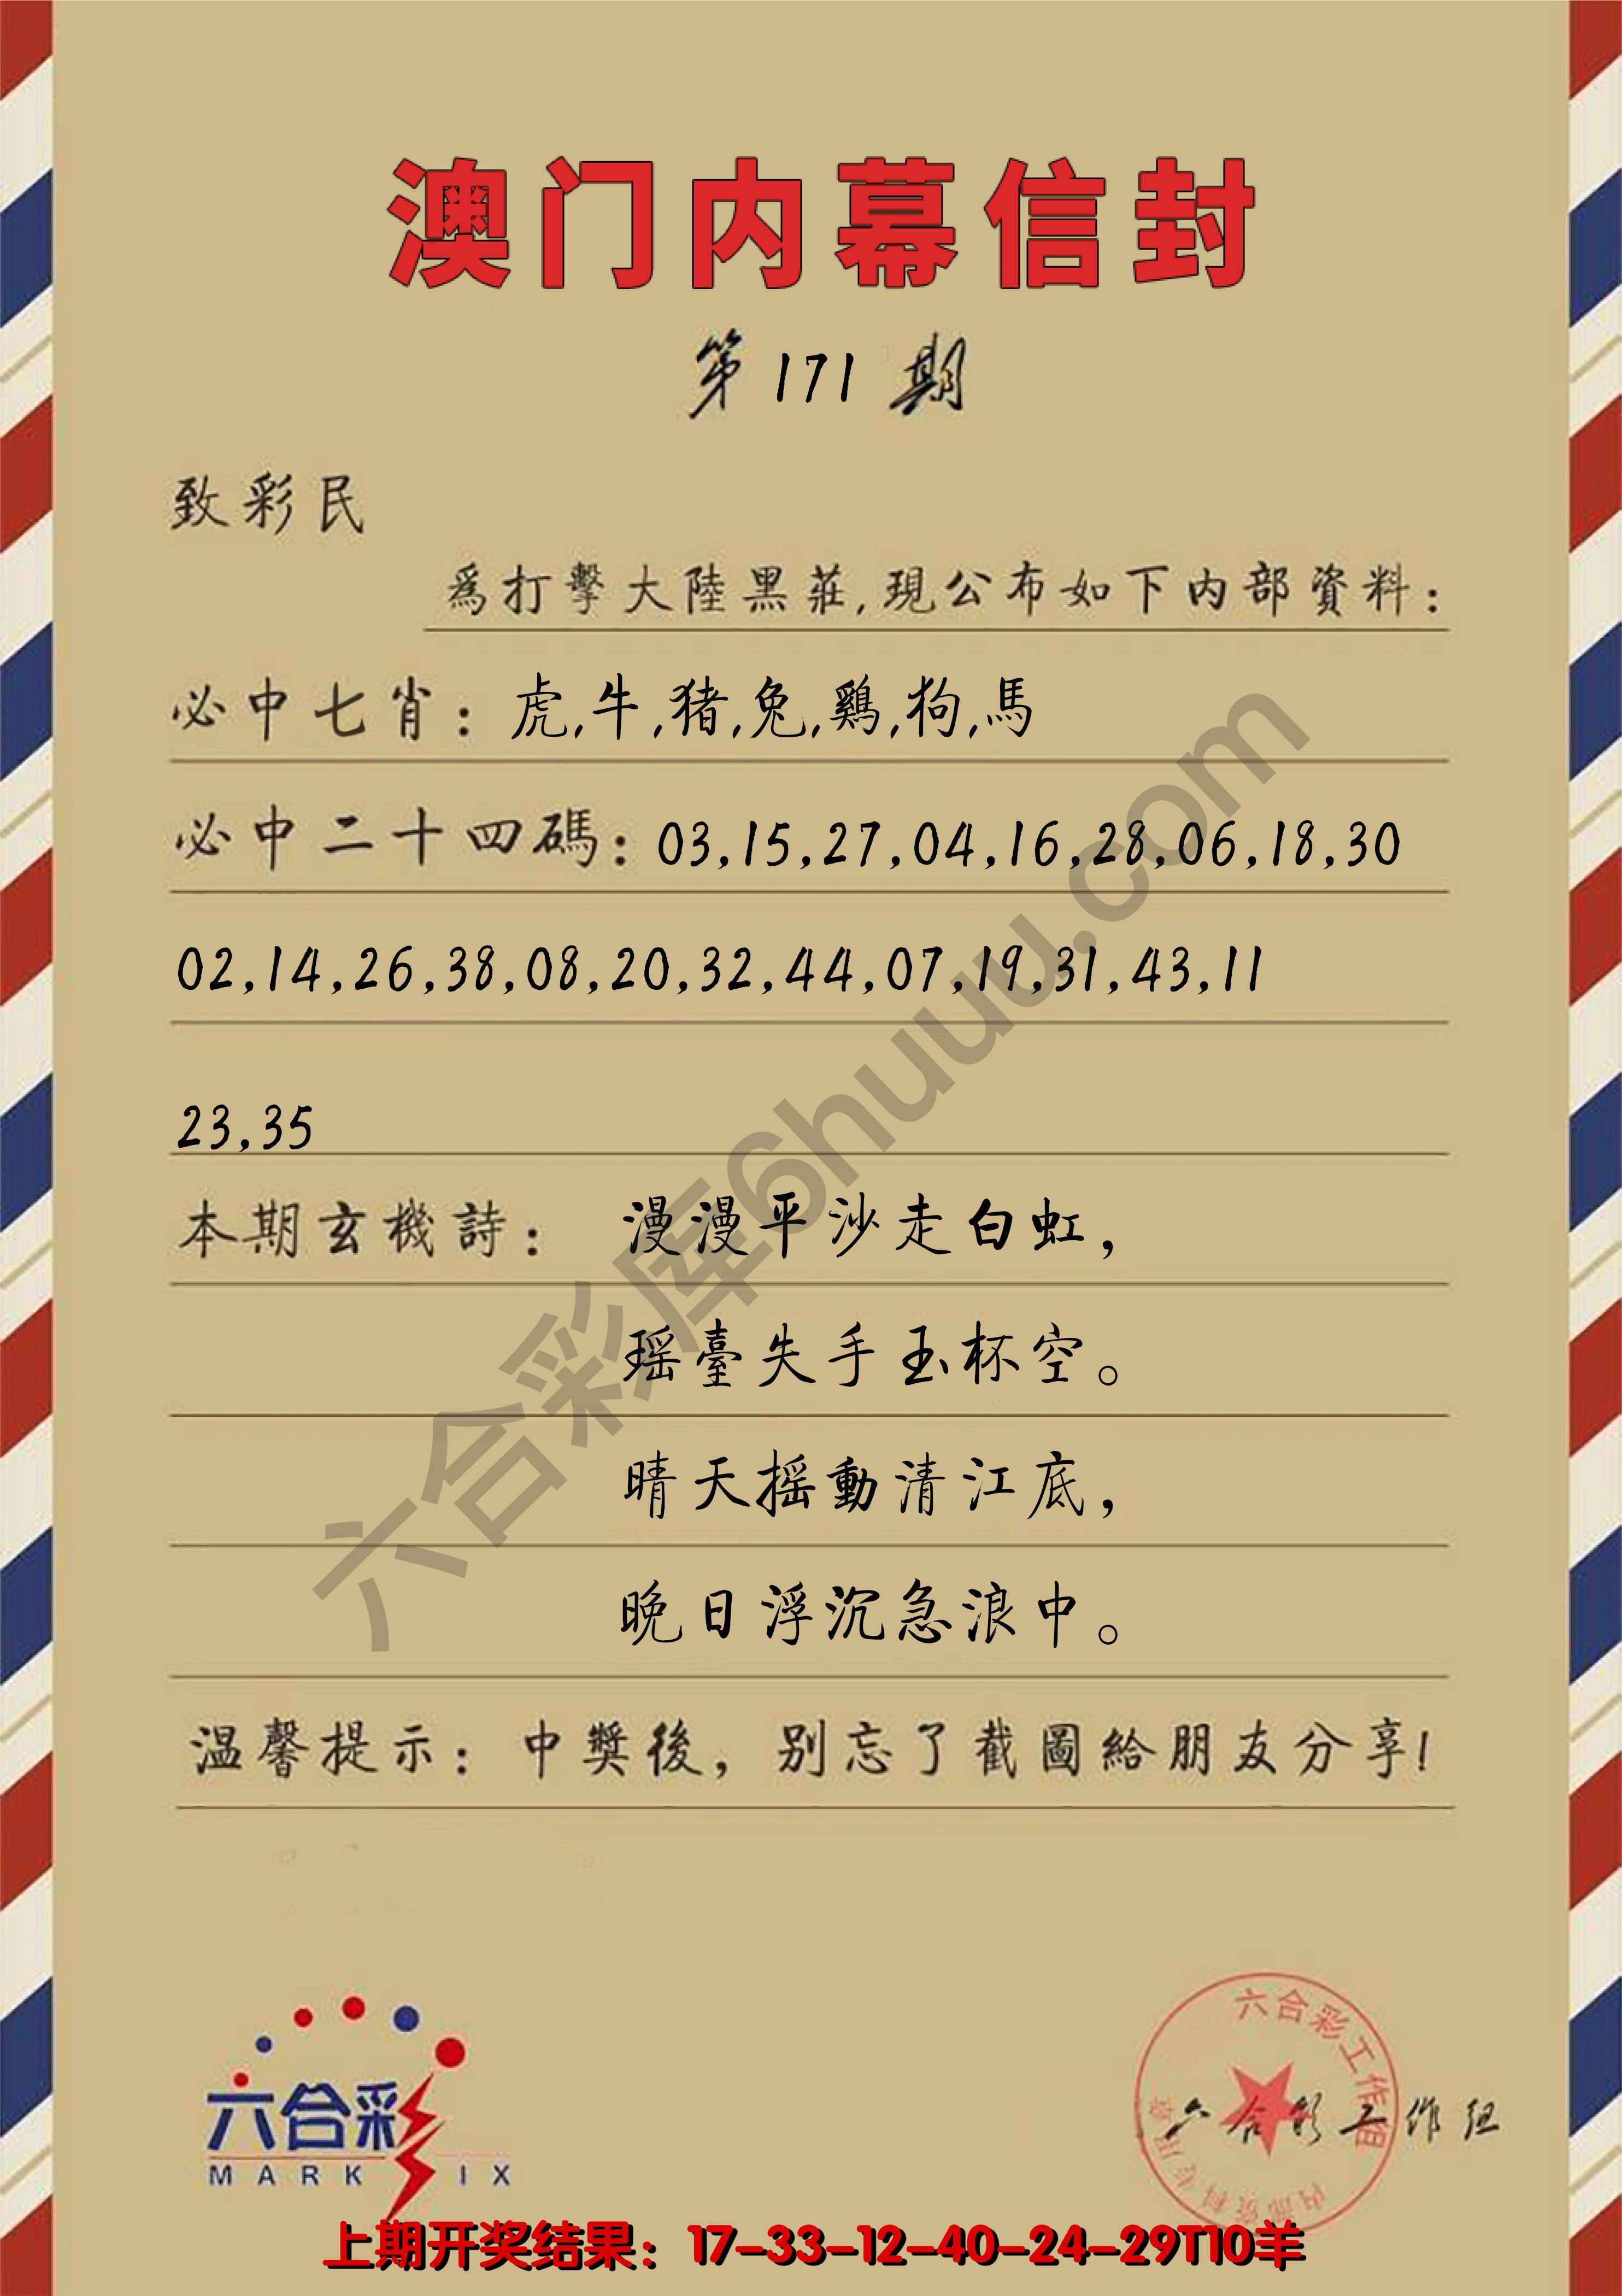 澳门内幕信封
第171期
致彩民
為打擊大陸黑莊,現公布如下内部資料:
必中七肖:虎,牛,猪,兔,鷄,狗,馬
必中二十四碼:03,15,27,04,16,28,06,18,30
02,14,26,38,08,20,32,44,07,19,31,43,11
23,35
本期玄機詩: 漫漫平沙走白虹,
瑶臺失手玉杯空。
晴天摇動清江底,
晚日浮沉急浪中。
温馨提示:中獎後,别忘了截圖給朋友分享!
六合彩库6huuu.com
六合彩
MARK IX
六合彩工作组
内部资料专用章
六合彩工作组
上期开奖结果:17-33-12-40-24-29T10羊